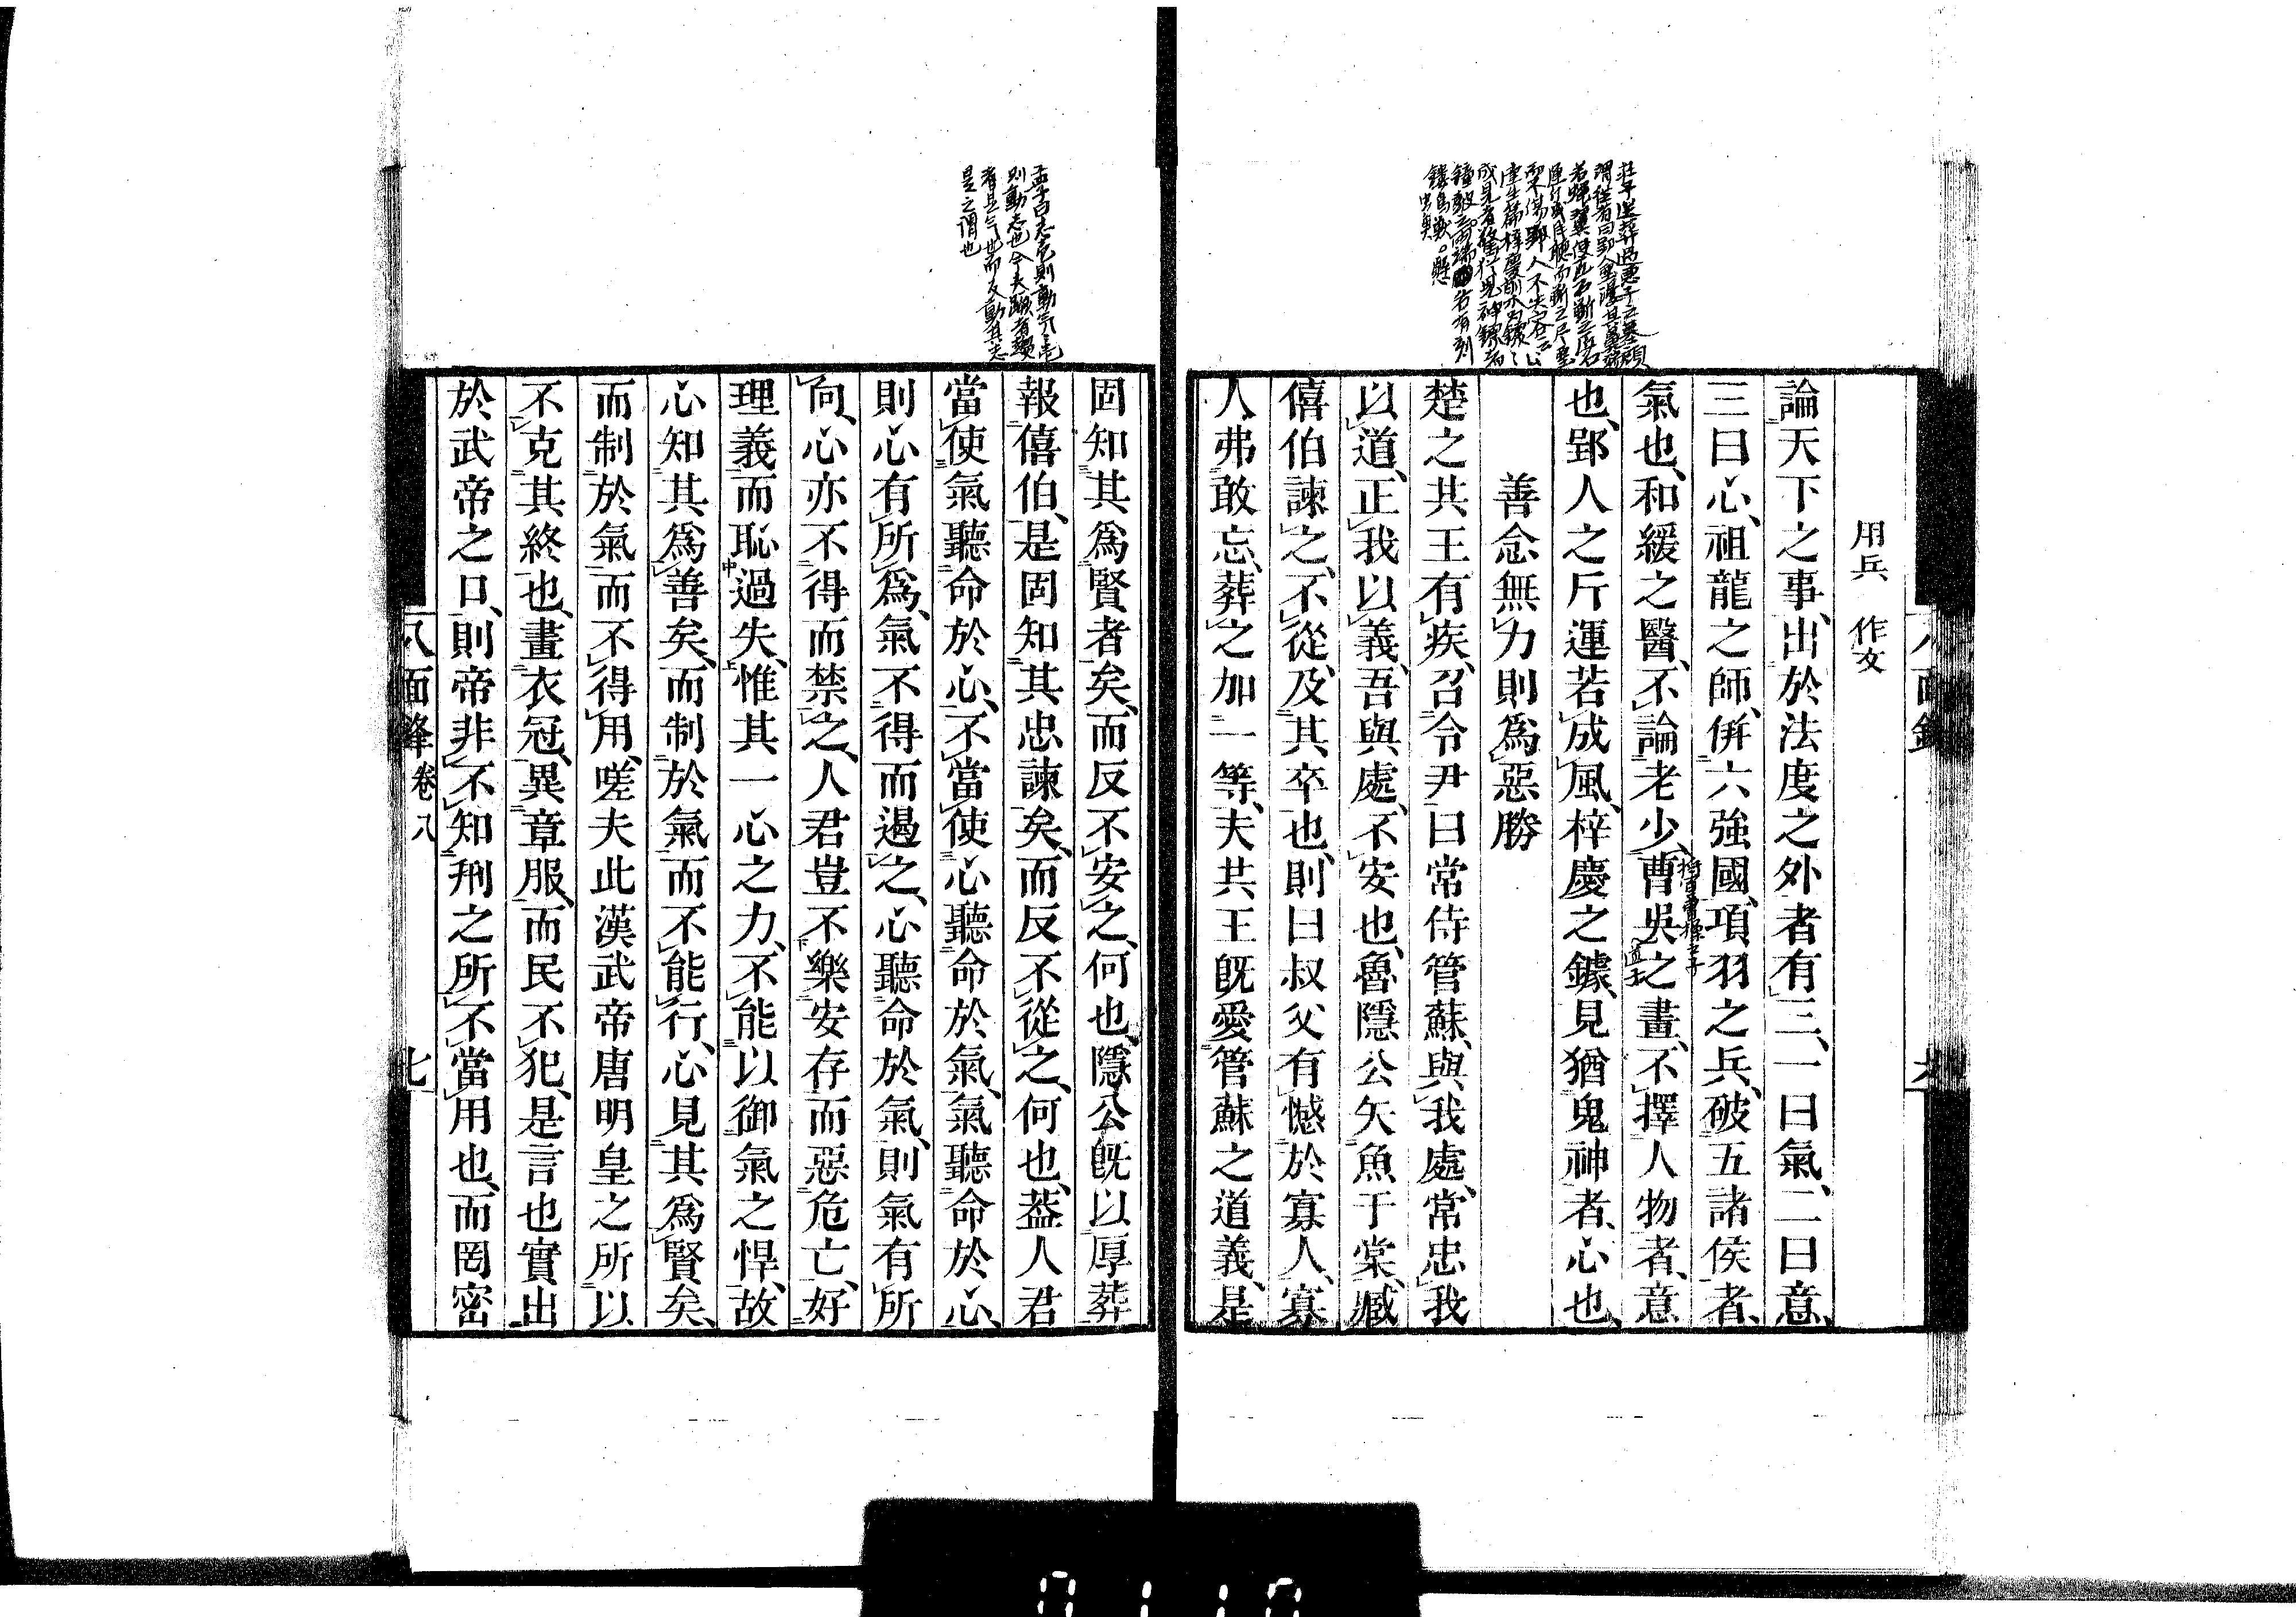 用兵　作文
論天下之事、出於法度之外者有三、一曰氣、二曰意、
三曰心、祖龍之師、併六強國、項羽之兵、破五諸侯者、
氣也、和緩之醫、不論老少、曹吳之畫、不擇人物者、意
也、郢人之斤運若成風、梓慶之鐻、見猶鬼神者、心也、
善念無力則爲惡勝
楚之共王有疾、召令尹曰常侍管蘇、與我處、常忠我
以道、正我以義、吾與處、不安也、魯隱公矢魚于棠、臧
僖伯諫之、不從、及其卒也、則曰叔父有憾於寡人、寡
人弗敢忘、葬之加一等、夫共王既愛管蘇之道義、是
固知其爲賢者矣、而反不安之、何也、隱公既以厚葬
報僖伯、是固知其忠諫矣、而反不從之、何也、葢人君
當使氣聽命於心、不當使心聽命於氣、氣聽命於心、
則心有所爲、氣不得而遏之、心聽命於氣、則氣有所
向、心亦不得而禁之、人君豈不樂安存而惡危亡、好
理義而恥過失、惟其一心之力、不能以御氣之悍、故
心知其爲善矣、而制於氣而不能行、心見其爲賢矣、
而制於氣而不得用、嗟夫此漢武帝唐明皇之所以
不克其終也、畫衣冠、異章服、而民不犯、是言也實出
於武帝之口、則帝非不知刑之所不當用也、而罔密
八面鋒　卷八　七
孟子曰志壱則動氣〻壱
則動志也今夫蹶者趨
者是气也而反動其志
是之謂也